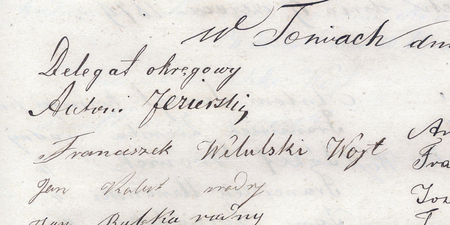 W Toniach dn
Delegat okręgowy
Antoni Jezierski
Franciszek Wilulski Wojt An
Fra
Jan radny Jos
Jan Bubka radny